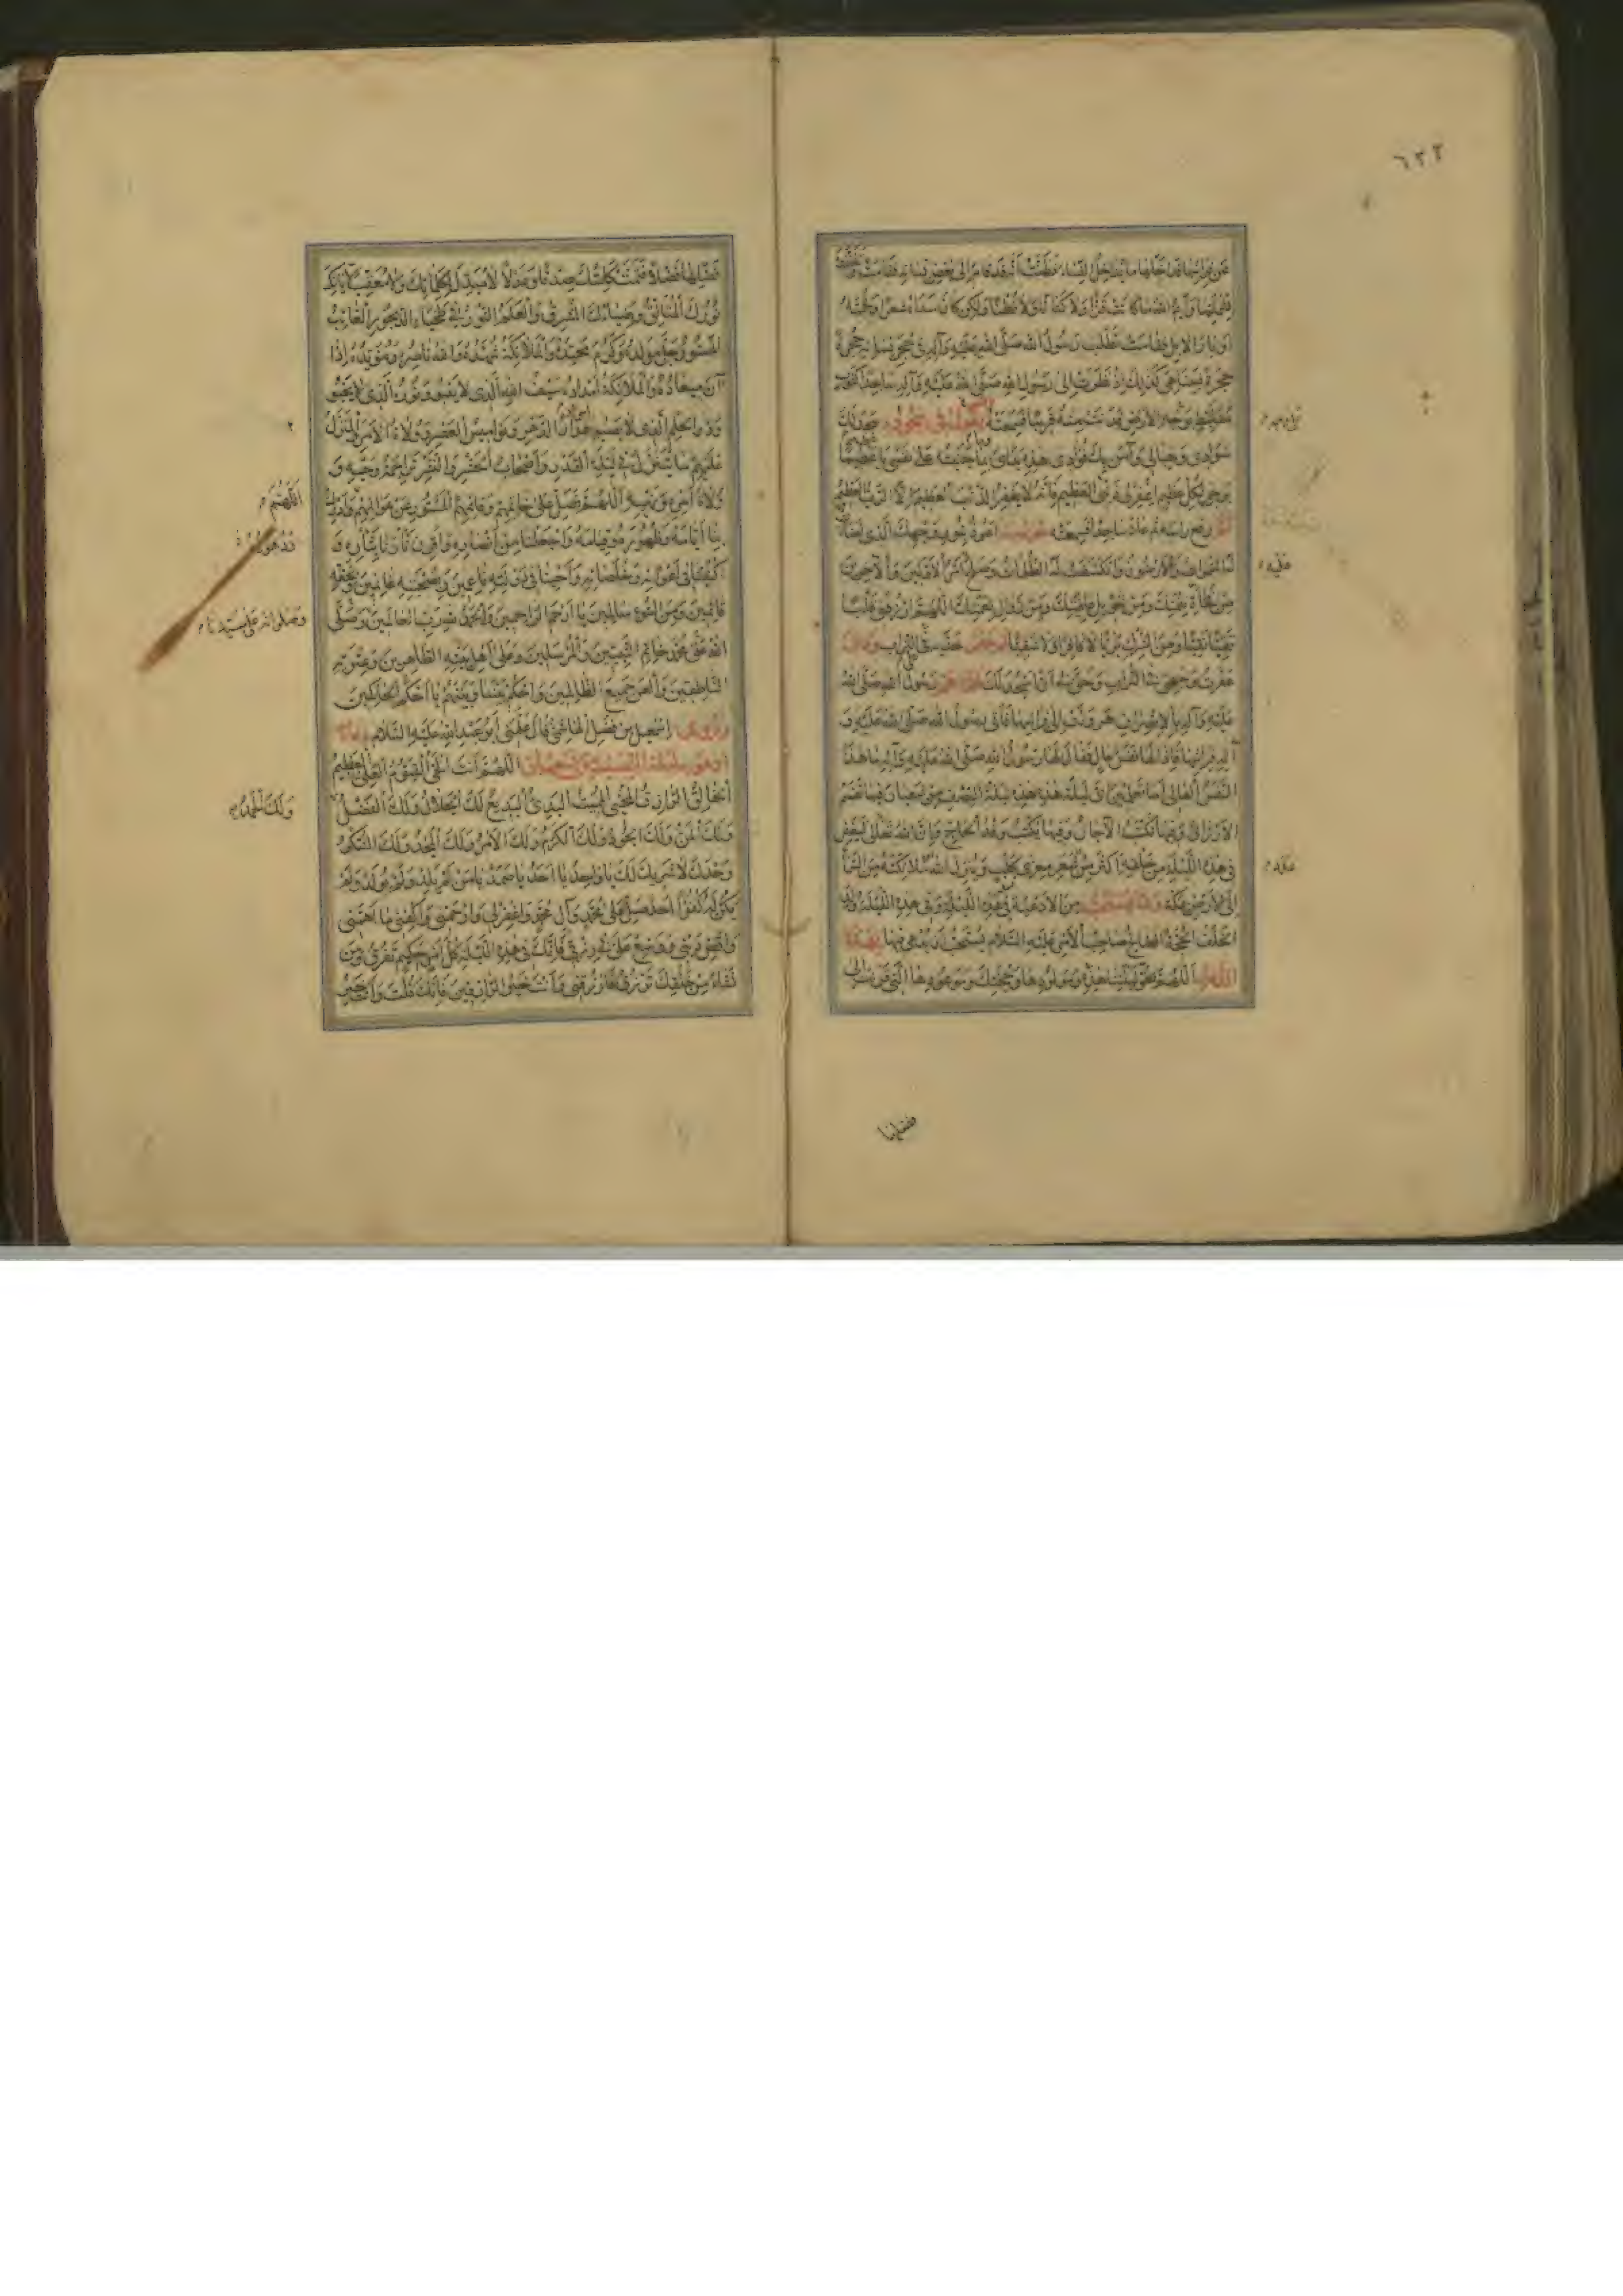 ٦٢٢
عن فراشها قد خلها ما يتداخل النساء فظنت أنه قد قام إلى بعض نسائه فقامت
ولا كتانا ولا قطنا ولكن كان سداه شعرا ولحمته
أوبار الإبل فقامت تطلب رسول الله صلى الله عليه وآله في حجر نسائه حجرة
حجرة فبينا هي كذلك إذ نظرت إلى رسول الله صلى الله عليه وآله ساجدا كثوب
بوجه الأرض فدنت منه قريبا فسمعته يقول في سجوده سجد لك
سوادي وخيالي وآمن بك فؤادي هذه يداي وما جنيته على نفسي يا عظيما
يرجى لكل عظيم اغفر لي العظيم فإنه لا يغفر الذنب العظيم إلا الرب العظيم
ثم رفع رأسه ثم عاد ساجدا فسمعته يقول أعوذ بنور وجهك الذي أضاءت
له السموات والأرضون وانكشفت له الظلمات وصلح عليه أمر الأولين والآخرين
من فجأة نقمتك ومن تحويل عافيتك ومن زوال نعمتك اللهم ارزقني قلبا
تقيا نقيا ومن الشرك بريا لا كافرا ولا شقيا ثم عفر خديه في التراب وقال
عفرت وجهي في التراب وحق لي أن أسجد لك فلما هم رسول الله صلى الله
عليه وآله بالانصراف هرولت إلى فراشها فأتى رسول الله صلى الله عليه و
آله فراشها فإذا لها نفس عال فقال لها رسول الله صلى الله عليه وآله ما هذا
النفس العالي أما تعلمين أي ليلة هذه هذه ليلة النصف من شعبان فيها تقسم
الأرزاق وفيها تكتب الآجال وفيها يكتب وفد الحاج وإن الله تعالى ليغفر
في هذه الليلة من خلقه أكثر من شعر معزى كلب وينزل الله ملائكته من السماء
إلى الأرض بمكة ومما يستحب من الأدعية في هذه الليلة وفي هذه الليلة ولد
الخلف الحجة الصالح صاحب الأمر عليه السلام يستحب أن يدعى فيها بهذا
الدعاء اللهم بحق ليلتنا هذه ومولودها وحجتك وموعودها التي قرنت إلى
عليه
فضلها
فضلها فضلا فتمت كلمتك صدقا وعدلا لا مبدل لكلماتك ولا معقب لآياتك
نورك المتألق وضياؤك المشرق والعلم النور في طخياء الديجور الغائب
المستور جل مولده وكرم محتده والملائكة شهده والله ناصره ومؤيده إذا
آن ميعاده والملائكة أمداده سيف الله الذي لا ينبو ونوره الذي لا يخبو
وذو الحلم الذي لا يصبو مدار الدهر ونواميس العصر وولاة الأمر والمنزل
عليهم ما يتنزل في ليلة القدر وأصحاب الحشر والنشر تراجمة وحيه و
ولاة أمره ونهيه اللهم فصل على خاتمهم وقائمهم المستور عن عوالمهم وأدرك
بنا أيامه وظهوره وقيامه واجعلنا من أنصاره واقرن ثارنا بثاره و
اكتبنا في أعوانه وخلصائه وأحينا في دولته ناعمين وبصحبته غانمين وبحقه
قائمين ومن السوء سالمين يا أرحم الراحمين والحمد لله رب العالمين وصلى
الله على محمد خاتم النبيين والمرسلين وعلى أهل بيته الطاهرين وعترته
الناطقين والعن جميع الظالمين واحكم بيننا وبينهم يا أحكم الحاكمين
وروى اسمعيل بن فضل الهاشمي قال علمني أبو عبد الله عليه السلام دعاء
أدعو به ليلة النصف من شعبان اللهم أنت الحي القيوم العلي العظيم
الخالق الرازق المحيي المميت البدئ البديع لك الجلال ولك الفضل
ولك المن ولك الجود ولك الكرم ولك الأمر ولك المجد ولك الشكر
وحدك لا شريك لك يا واحد يا أحد يا صمد يا من لم يلد ولم يولد ولم
يكن له كفوا أحد صل على محمد وآل محمد واغفر لي وارحمني واكفني ما أهمني
واقض ديني ووسع علي في رزقي فإنك في هذه الليلة كل أمر حكيم تفرق ومن
تشاء من خلقك ترزق فارزقني وأنت خير الرازقين فإنك قلت وأنت خير
اللهم
وصلواته على سيدنا
ولك الحمد